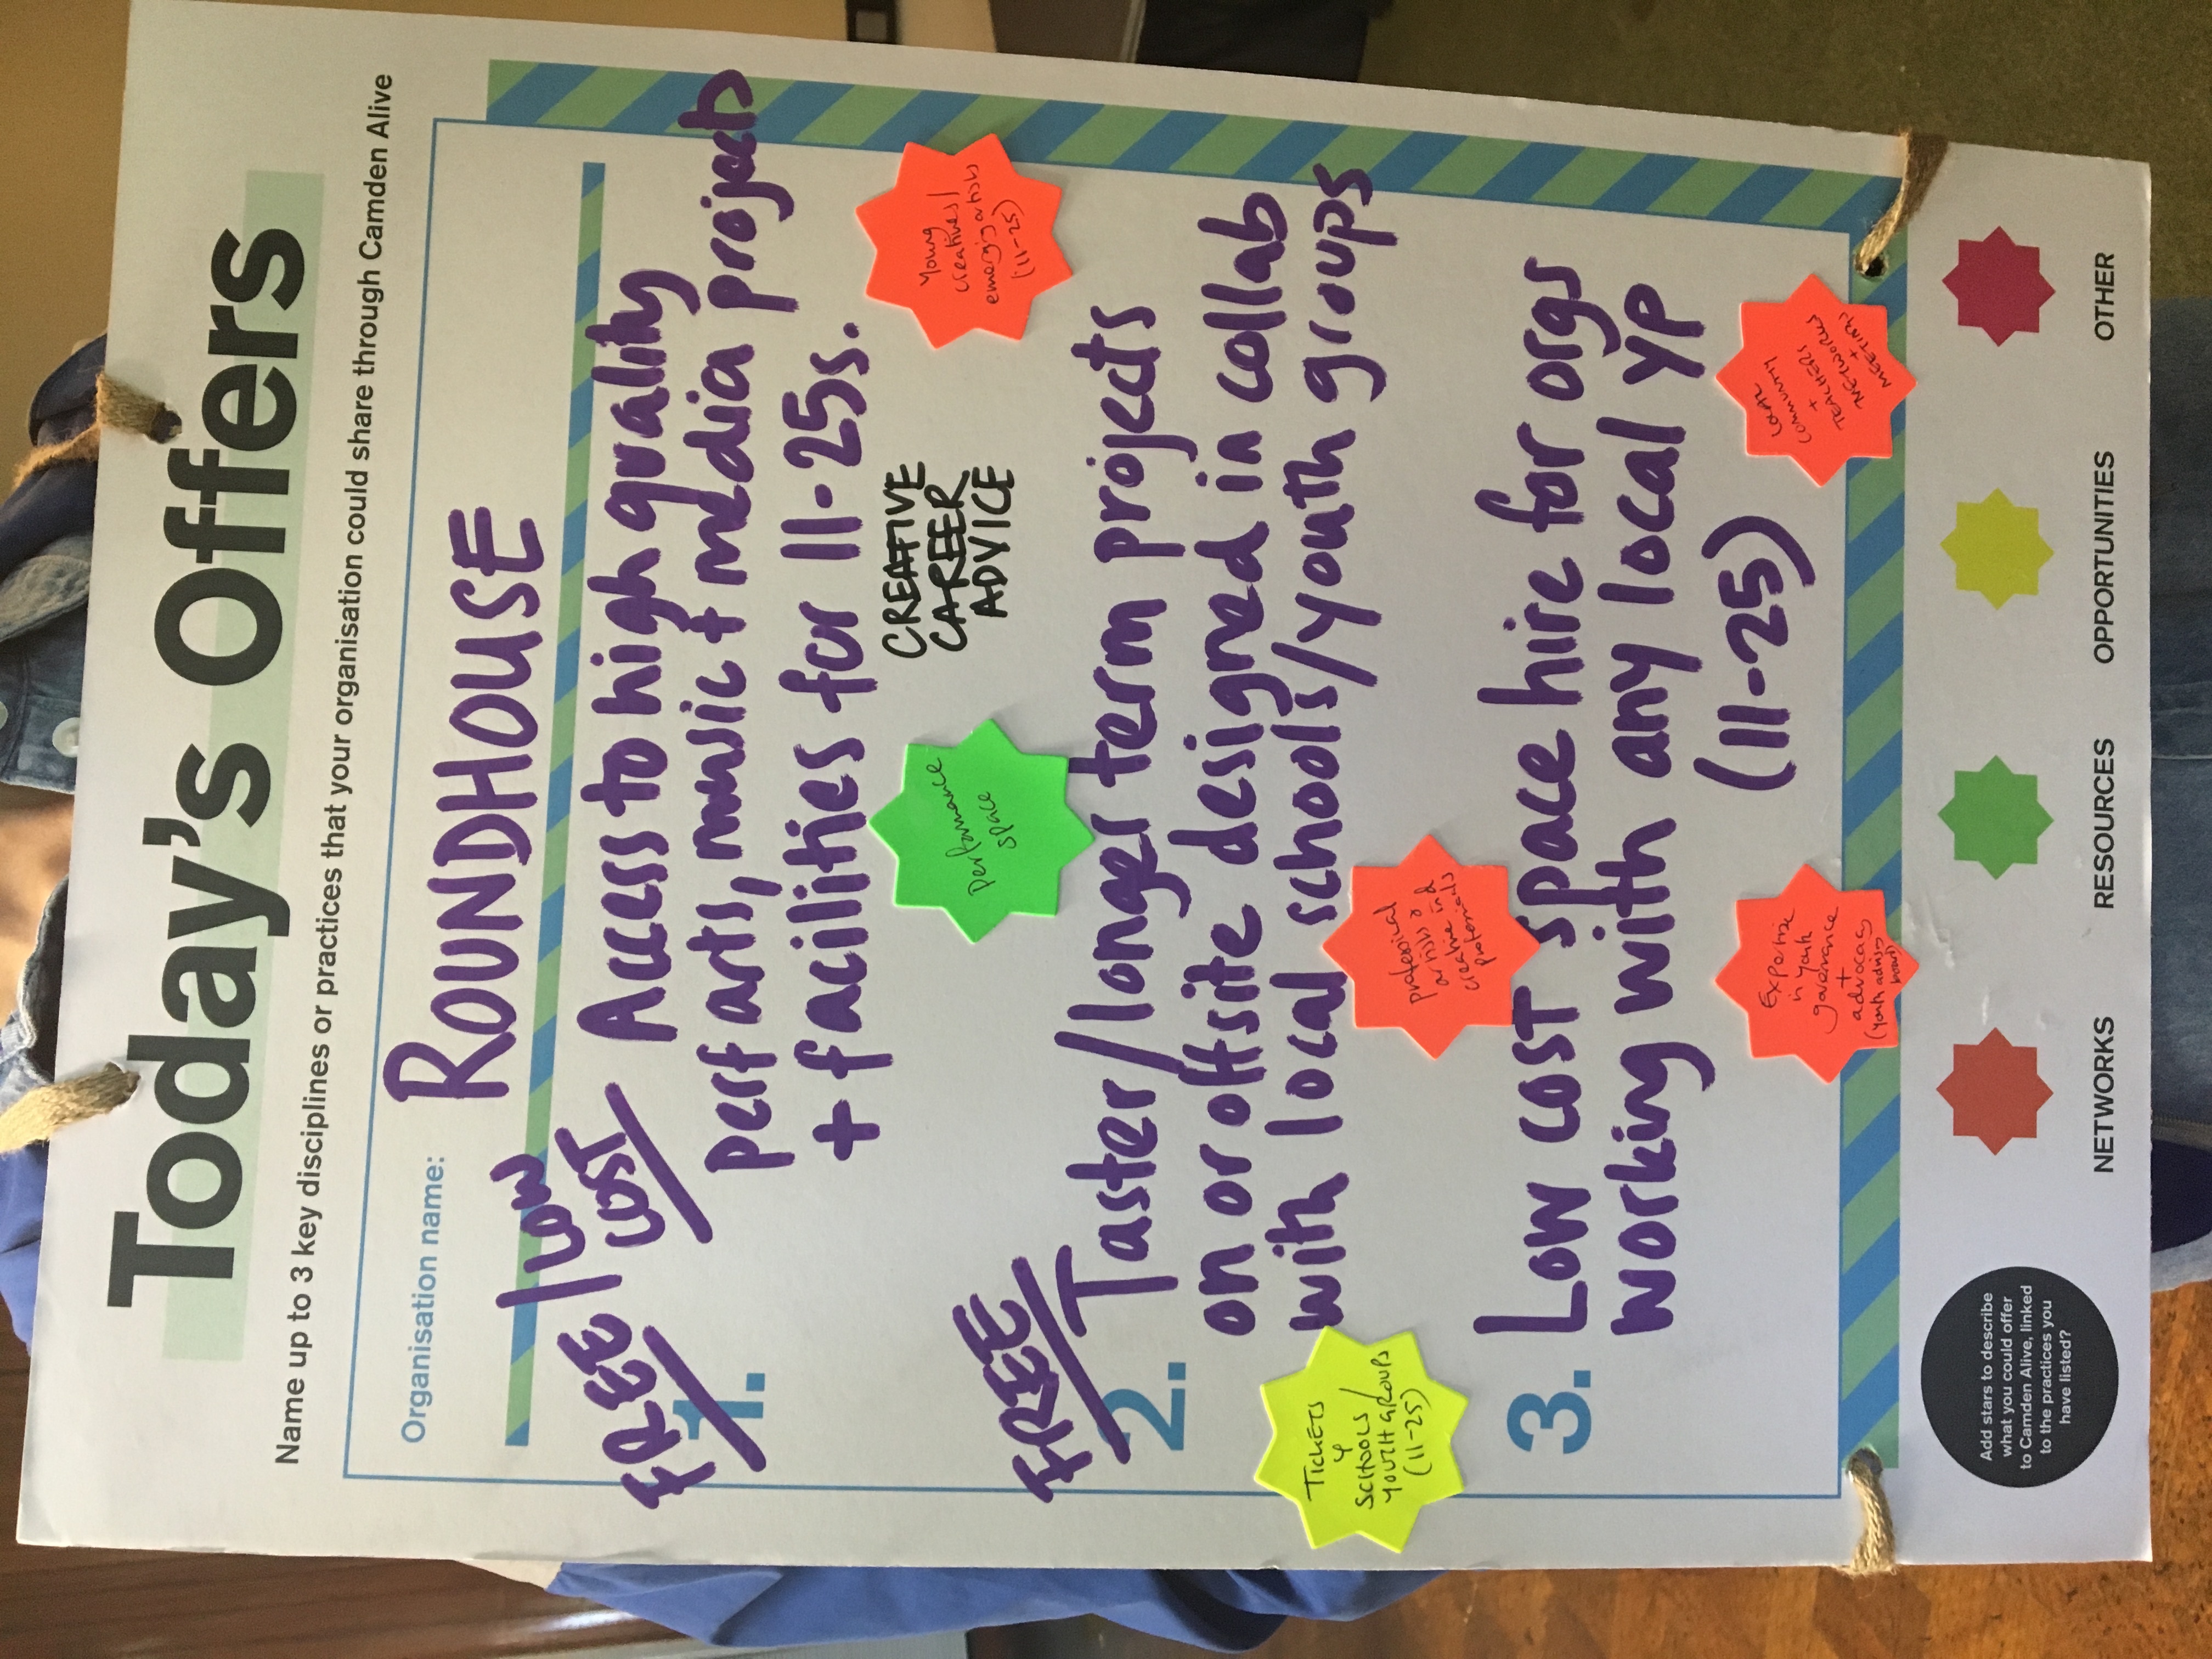 Today's Offers
Name up to 3 key disciplines or practices that your organisation could share through Camden Alive
Organisation name:
ROUNDHOUSE
FREE/LOW
COST
1.
Access to high quality
perf arts, music + media projects
+ facilities for 11-25s.
CREATIVE
CAREER
ADVICE
Young
creatives/
emerging artists
(11-25)
Performance
space
FREE
2.
Taster/longer term projects
on or offsite designed in collab
with local schools/youth groups
TICKETS
4
SCHOOLS/
YOUTH GROUPS
(11-25)
professional
artists &
creative ind
professionals
3.
Low cost space hire for orgs
working with any local yp
(11-25)
Expertise
in youth
governance
+
advocacy
(youth advisory
LOCAL
COMMUNITY
+
TEACHERS
NETWORKS
+
MEETINGS
Add stars to describe
what you could offer
to Camden Alive, linked
to the practices you
have listed?
NETWORKS
RESOURCES
OPPORTUNITIES
OTHER